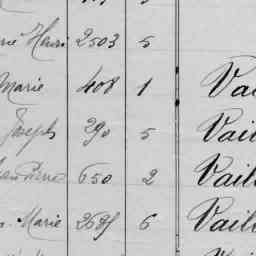 Henri 2503 5
Marie 408 1 Vai
Joseph 290 5 Vail
Pierre 650 2 Vail
Marie 2685 6 Vail